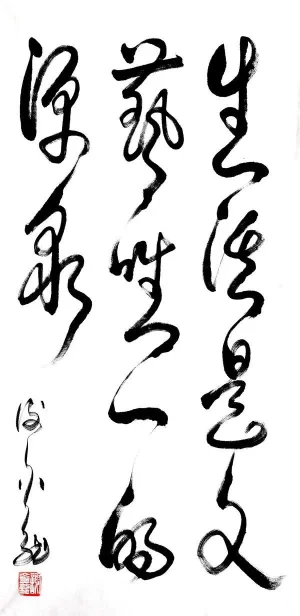 生活是文
艺唯一的
源泉